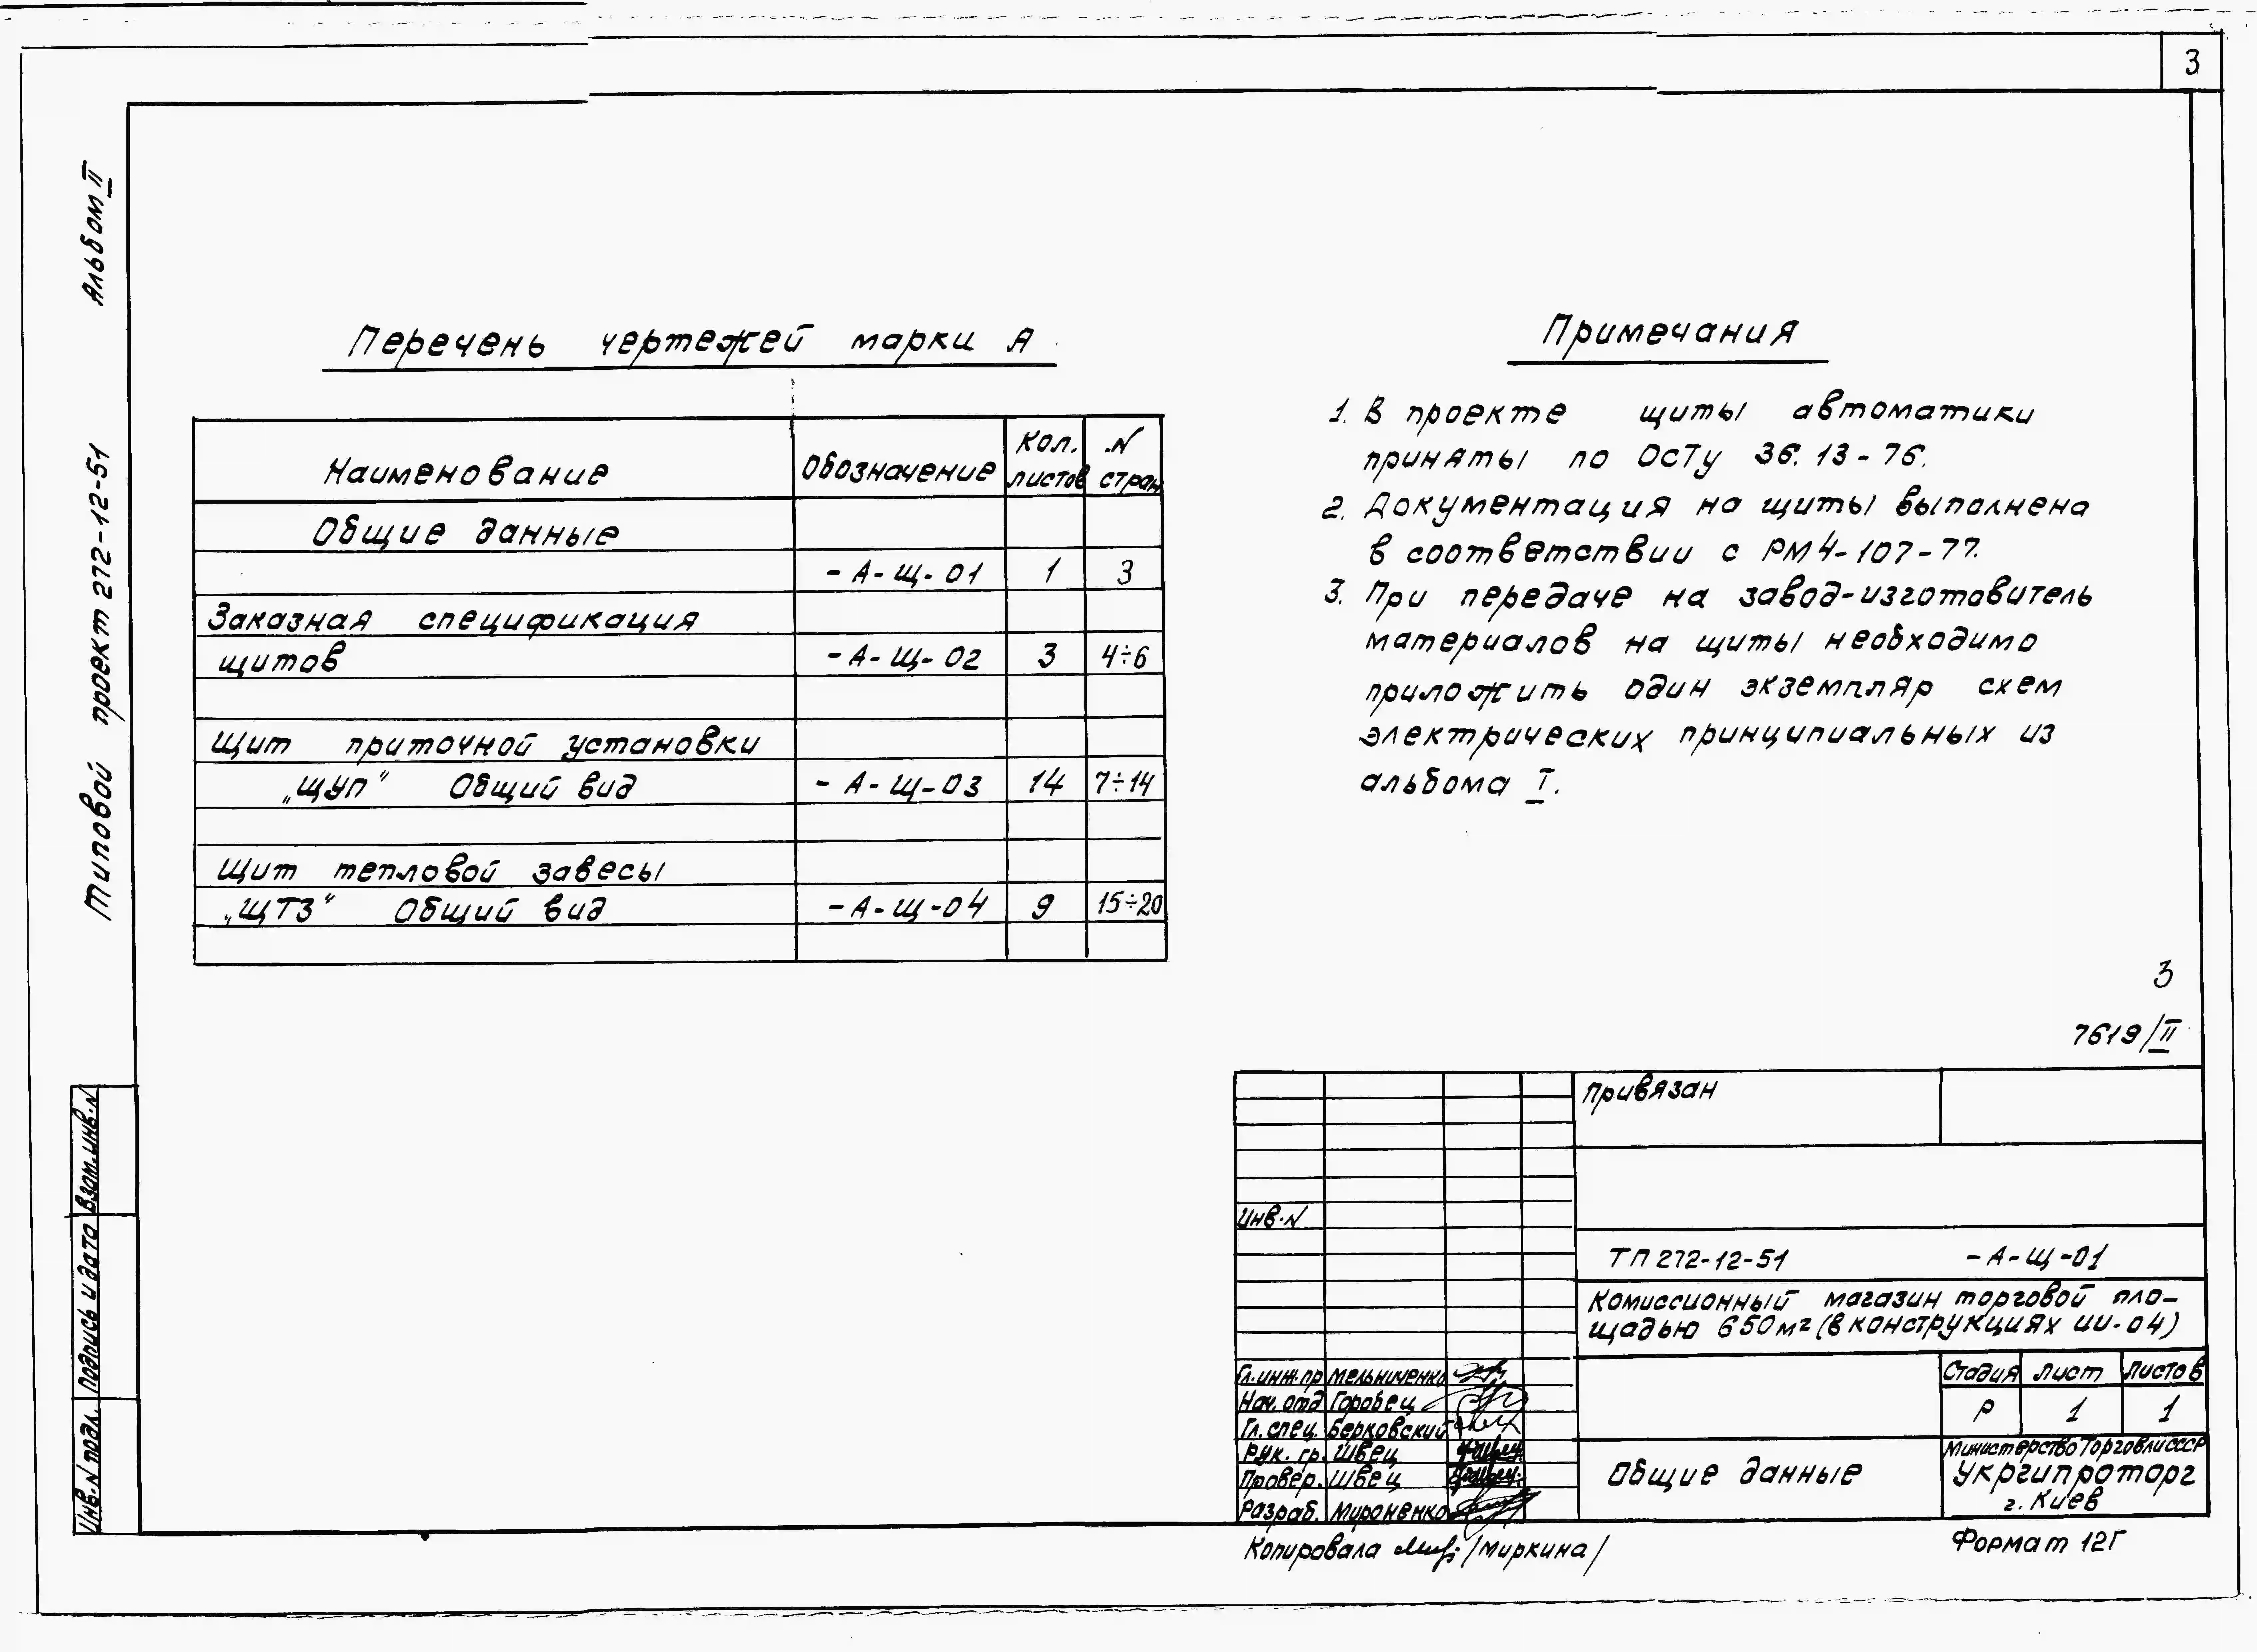 3
Альбом II
Типовой проект 272-12-51
Перечень чертежей марки А
Наименование
Обозначение
Кол. листов
N стран
Общие данные
-А-Щ-01 1 3
Заказная спецификация
щитов -А-Щ-02 3 4÷6
Щит приточной установки
„ЩУП" Общий вид -А-Щ-03 14 7÷14
Щит тепловой завесы
„ЩТЗ" Общий вид -А-Щ-04 9 15÷20
Примечания
1. В проекте щиты автоматики
приняты по ОСТу 36.13-76.
2. Документация на щиты выполнена
в соответствии с РМ4-107-77.
3. При передаче на завод-изготовитель
материалов на щиты необходимо
приложить один экземпляр схем
электрических принципиальных из
альбома I.
3
7619/II
Привязан
Инв.N
ТП 272-12-51 -А-Щ-01
Комиссионный магазин торговой пло-
щадью 650м2 (в конструкциях ИИ-04)
Гл.инж.пр Мельниченко
Нач.отд Горобец
Гл.спец. Берковский
Рук. гр. Швец
Провер. Швец
Разраб. Мироненко
Стадия Лист Листов
Р 1 1
Общие данные
Министерство Торговли СССР
Укргипроторг
г. Киев
Копировала /Миркина/
Формат 12Г
Взам.инв.N
Подпись и дата
Инв.N подл.